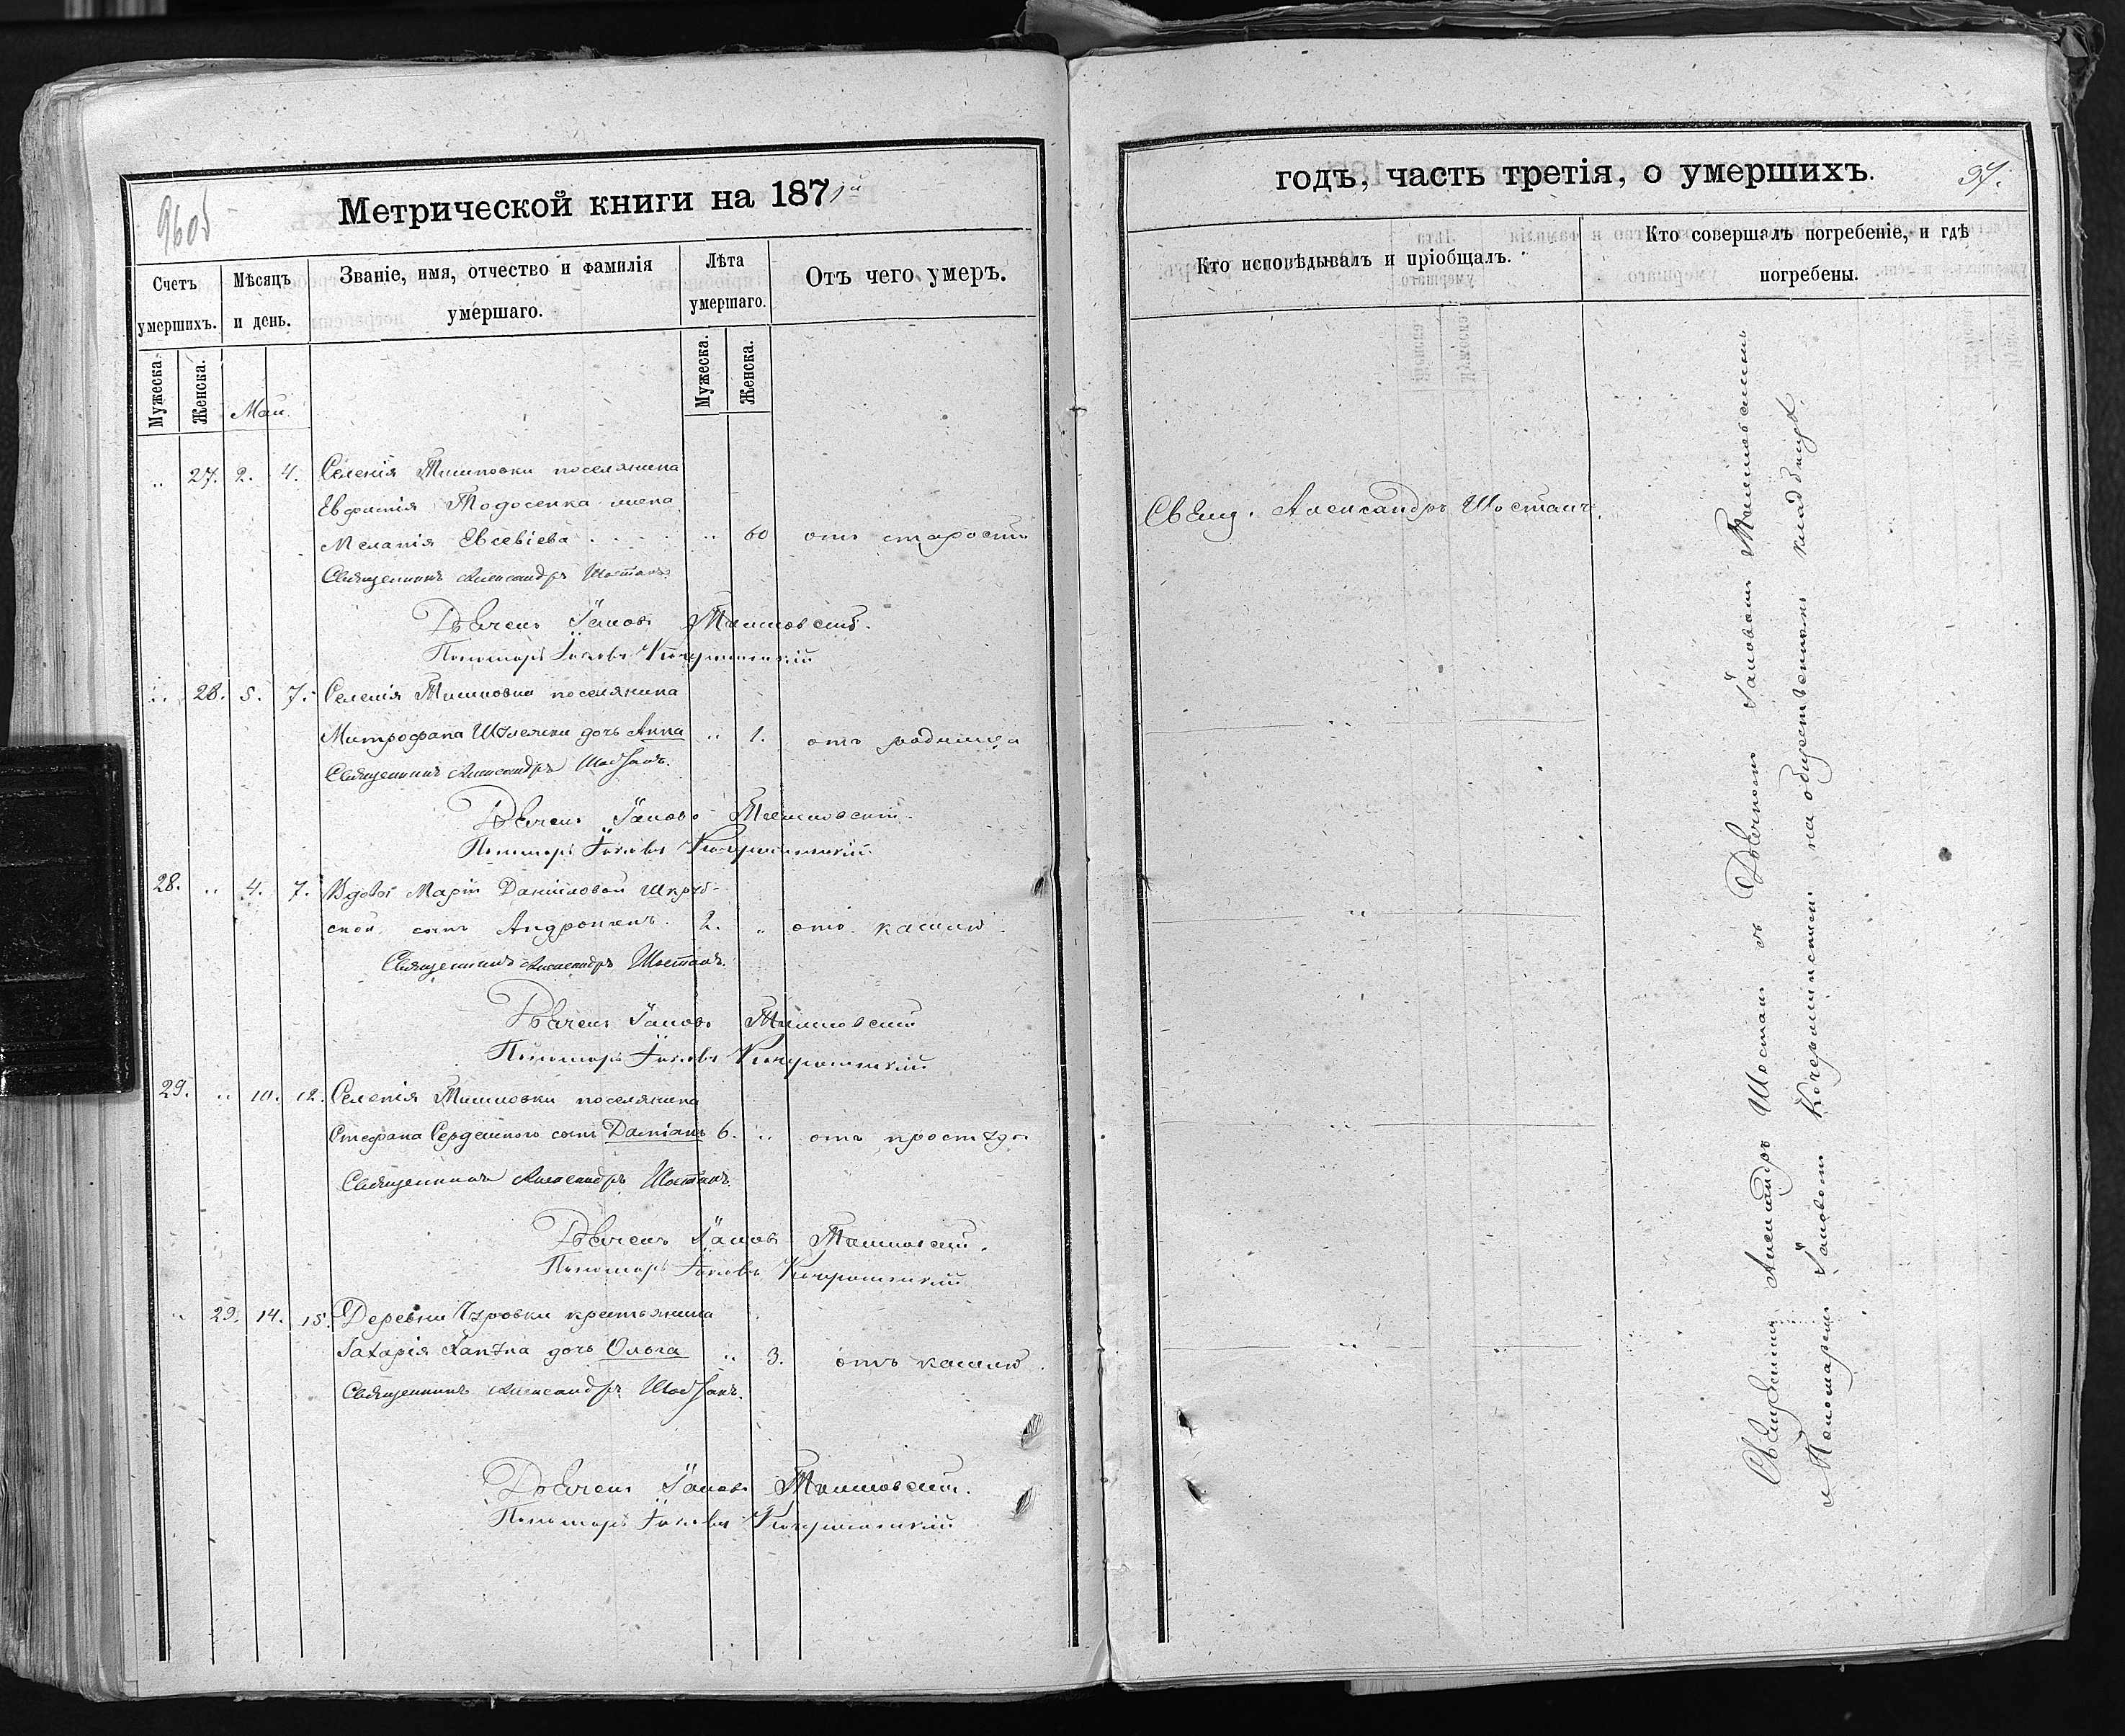 9605
Метрической книги на 1871й
Счетъ
умершихъ.
Мѣсяцъ
и день.
Званіе, имя, отчество и фамилія
умершаго.
Лѣта
умершаго.
Отъ чего умеръ.
Мужеска.
Женска.
Маи
Мужеска.
Женска.
27. 2. 4. Селенія поселянина
Тодосенка жена
Меланія Евсевіева 60 отъ старости
Священникъ Александръ Шостакъ
Дьячекъ Іаковъ
Пономарь Іаковъ
28. 5. 7. Селенія поселянина
Митрофана дочь Анна 1. отъ родимца
Священникъ Александръ Шостакъ.
Дьячекъ Іаковъ
Пономарь Іаковъ
28. 4. 7. Вдовы Маріи Даніиловой
ской сынъ 2. отъ кашлю.
Священникъ Александръ Шостакъ.
Дьячекъ Іаковъ
Пономарь Іаковъ
29. 10. 12. Селенія поселянина
Стефана сынъ Даміанъ 6. отъ простуды
Священникъ Александръ Шостакъ.
Дьячекъ Іаковъ
Пономарь Іаковъ
29. 14. 15. Деревни крестьянина
Захарія дочь Ольга 3. отъ кашлю.
Священникъ Александръ Шостакъ.
Дьячекъ Іаковъ
Пономарь Іаковъ
годъ, часть третія, о умершихъ.
97.
Кто исповѣдывалъ и пріобщалъ.
Кто совершалъ погребеніе, и гдѣ
погребены.
Свящ. Александръ Шостакъ.
Священникъ Александръ Шостакъ съ Дьячкомъ Іаковомъ
и Пономаремъ Іаковомъ на общественномъ кладбищѣ.